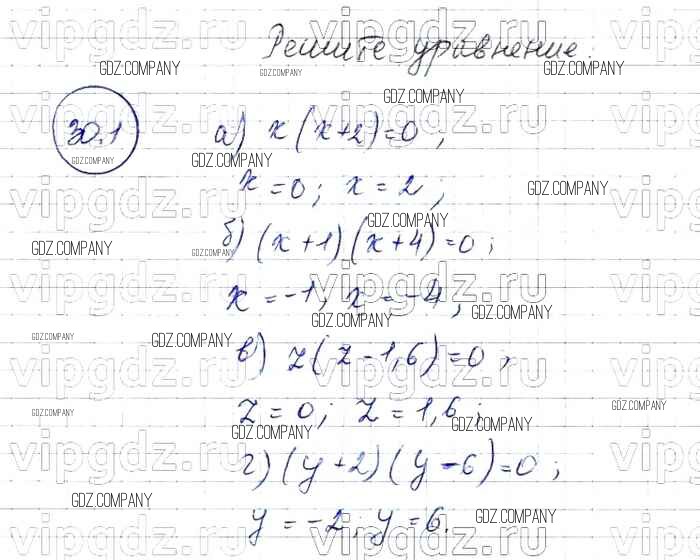 Решите уравнение.
30.1
а) x(x+2)=0;
x=0; x=2;
б) (x+1)(x+4)=0;
x=-1; x=-4;
в) z(z-1,6)=0;
z=0; z=1,6;
г) (y+2)(y-6)=0;
y=-2; y=6.